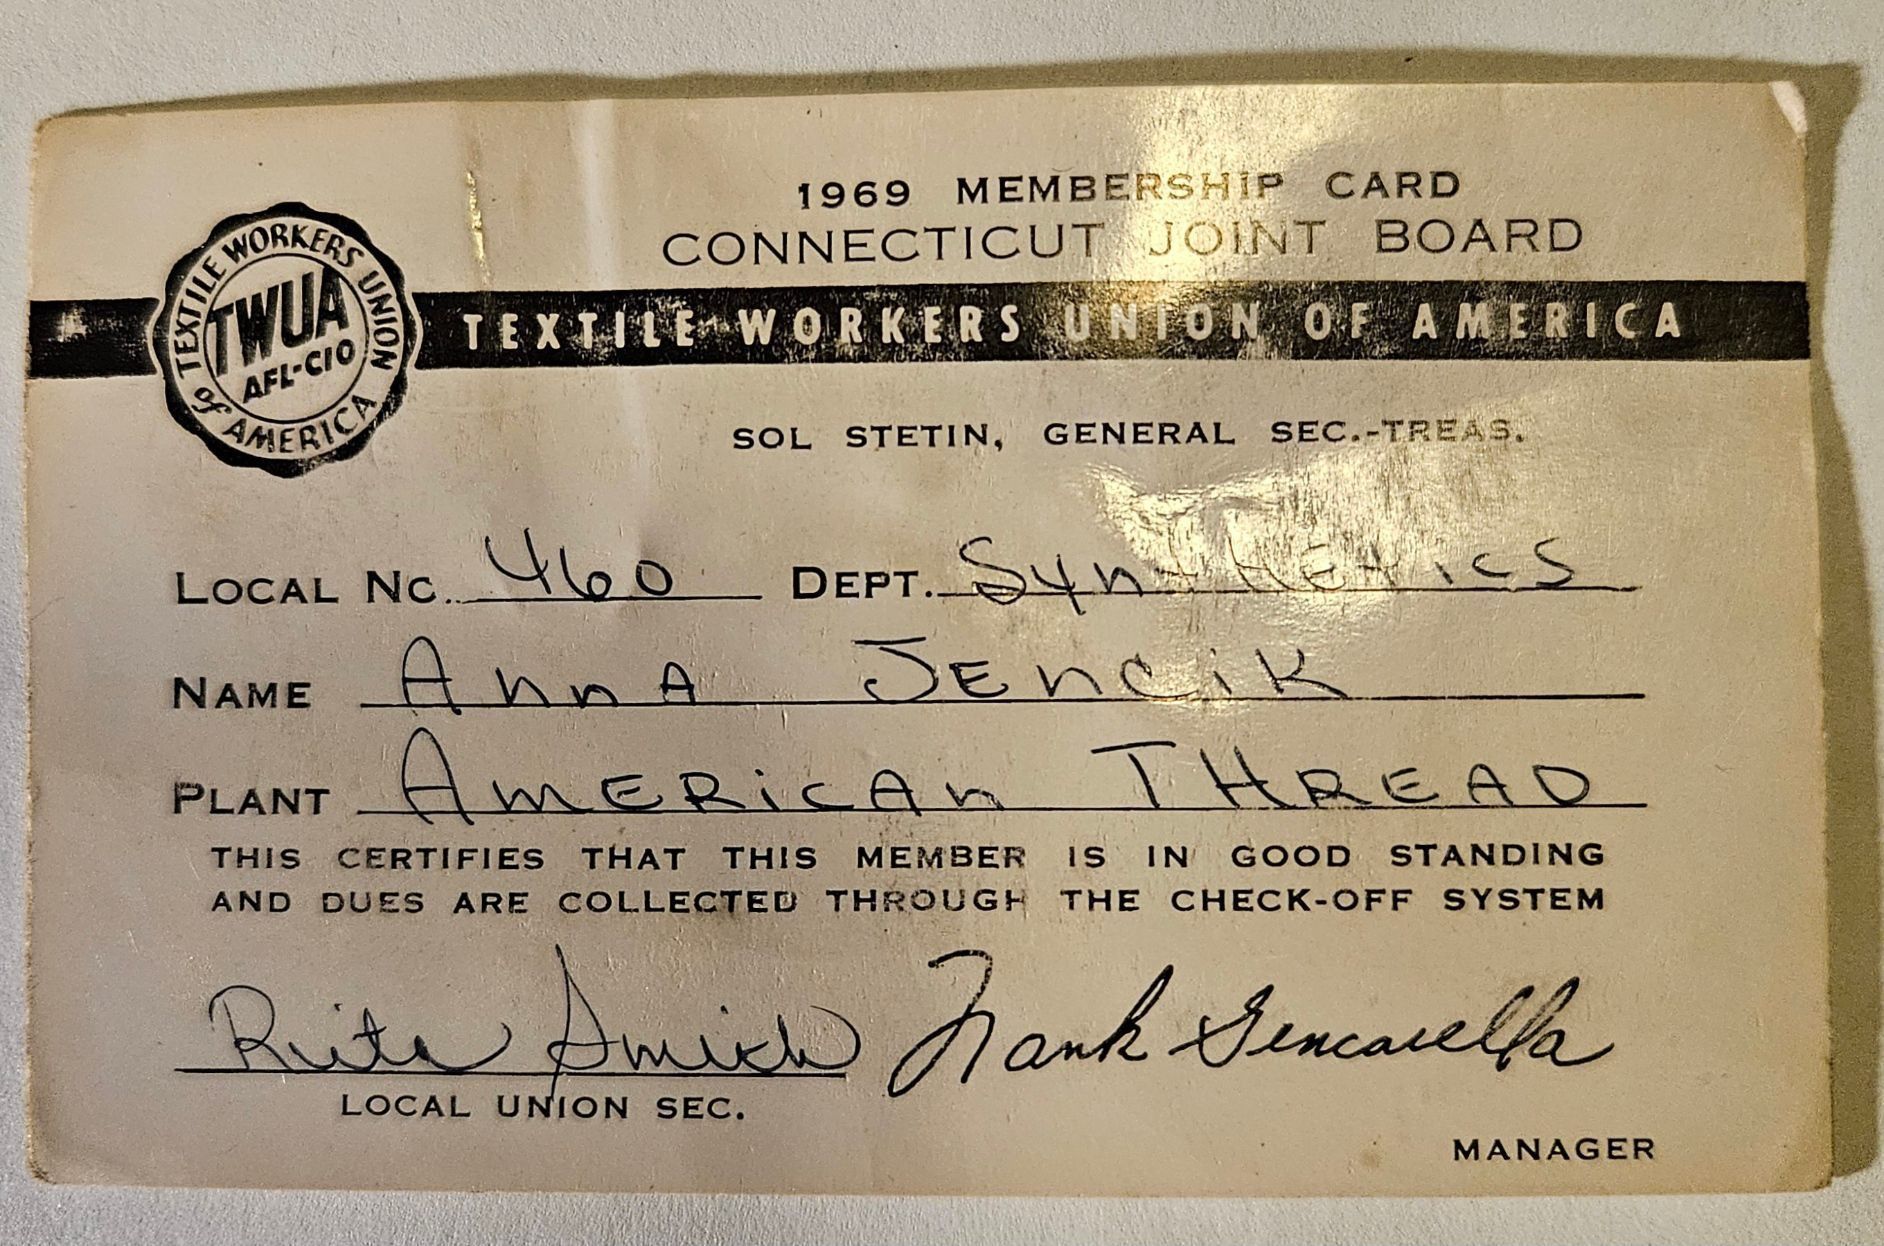 1969 MEMBERSHIP CARD
CONNECTICUT JOINT BOARD
TEXTILE WORKERS UNION of AMERICA
TWUA
AFL-CIO
TEXTILE WORKERS UNION OF AMERICA
SOL STETIN, GENERAL SEC.-TREAS.
LOCAL NO. 460 DEPT. SynTHETics
NAME AnnA JEnCiK
PLANT AMERiCAn THREAD
THIS CERTIFIES THAT THIS MEMBER IS IN GOOD STANDING
AND DUES ARE COLLECTED THROUGH THE CHECK-OFF SYSTEM
Rita Frank Gencarella
LOCAL UNION SEC.
MANAGER